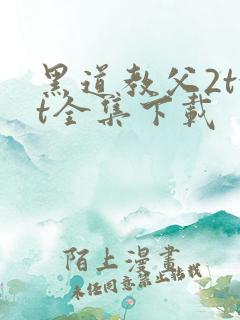 黑道教父2tx
t全集下载
陌上漫畫
未任同意禁止转载